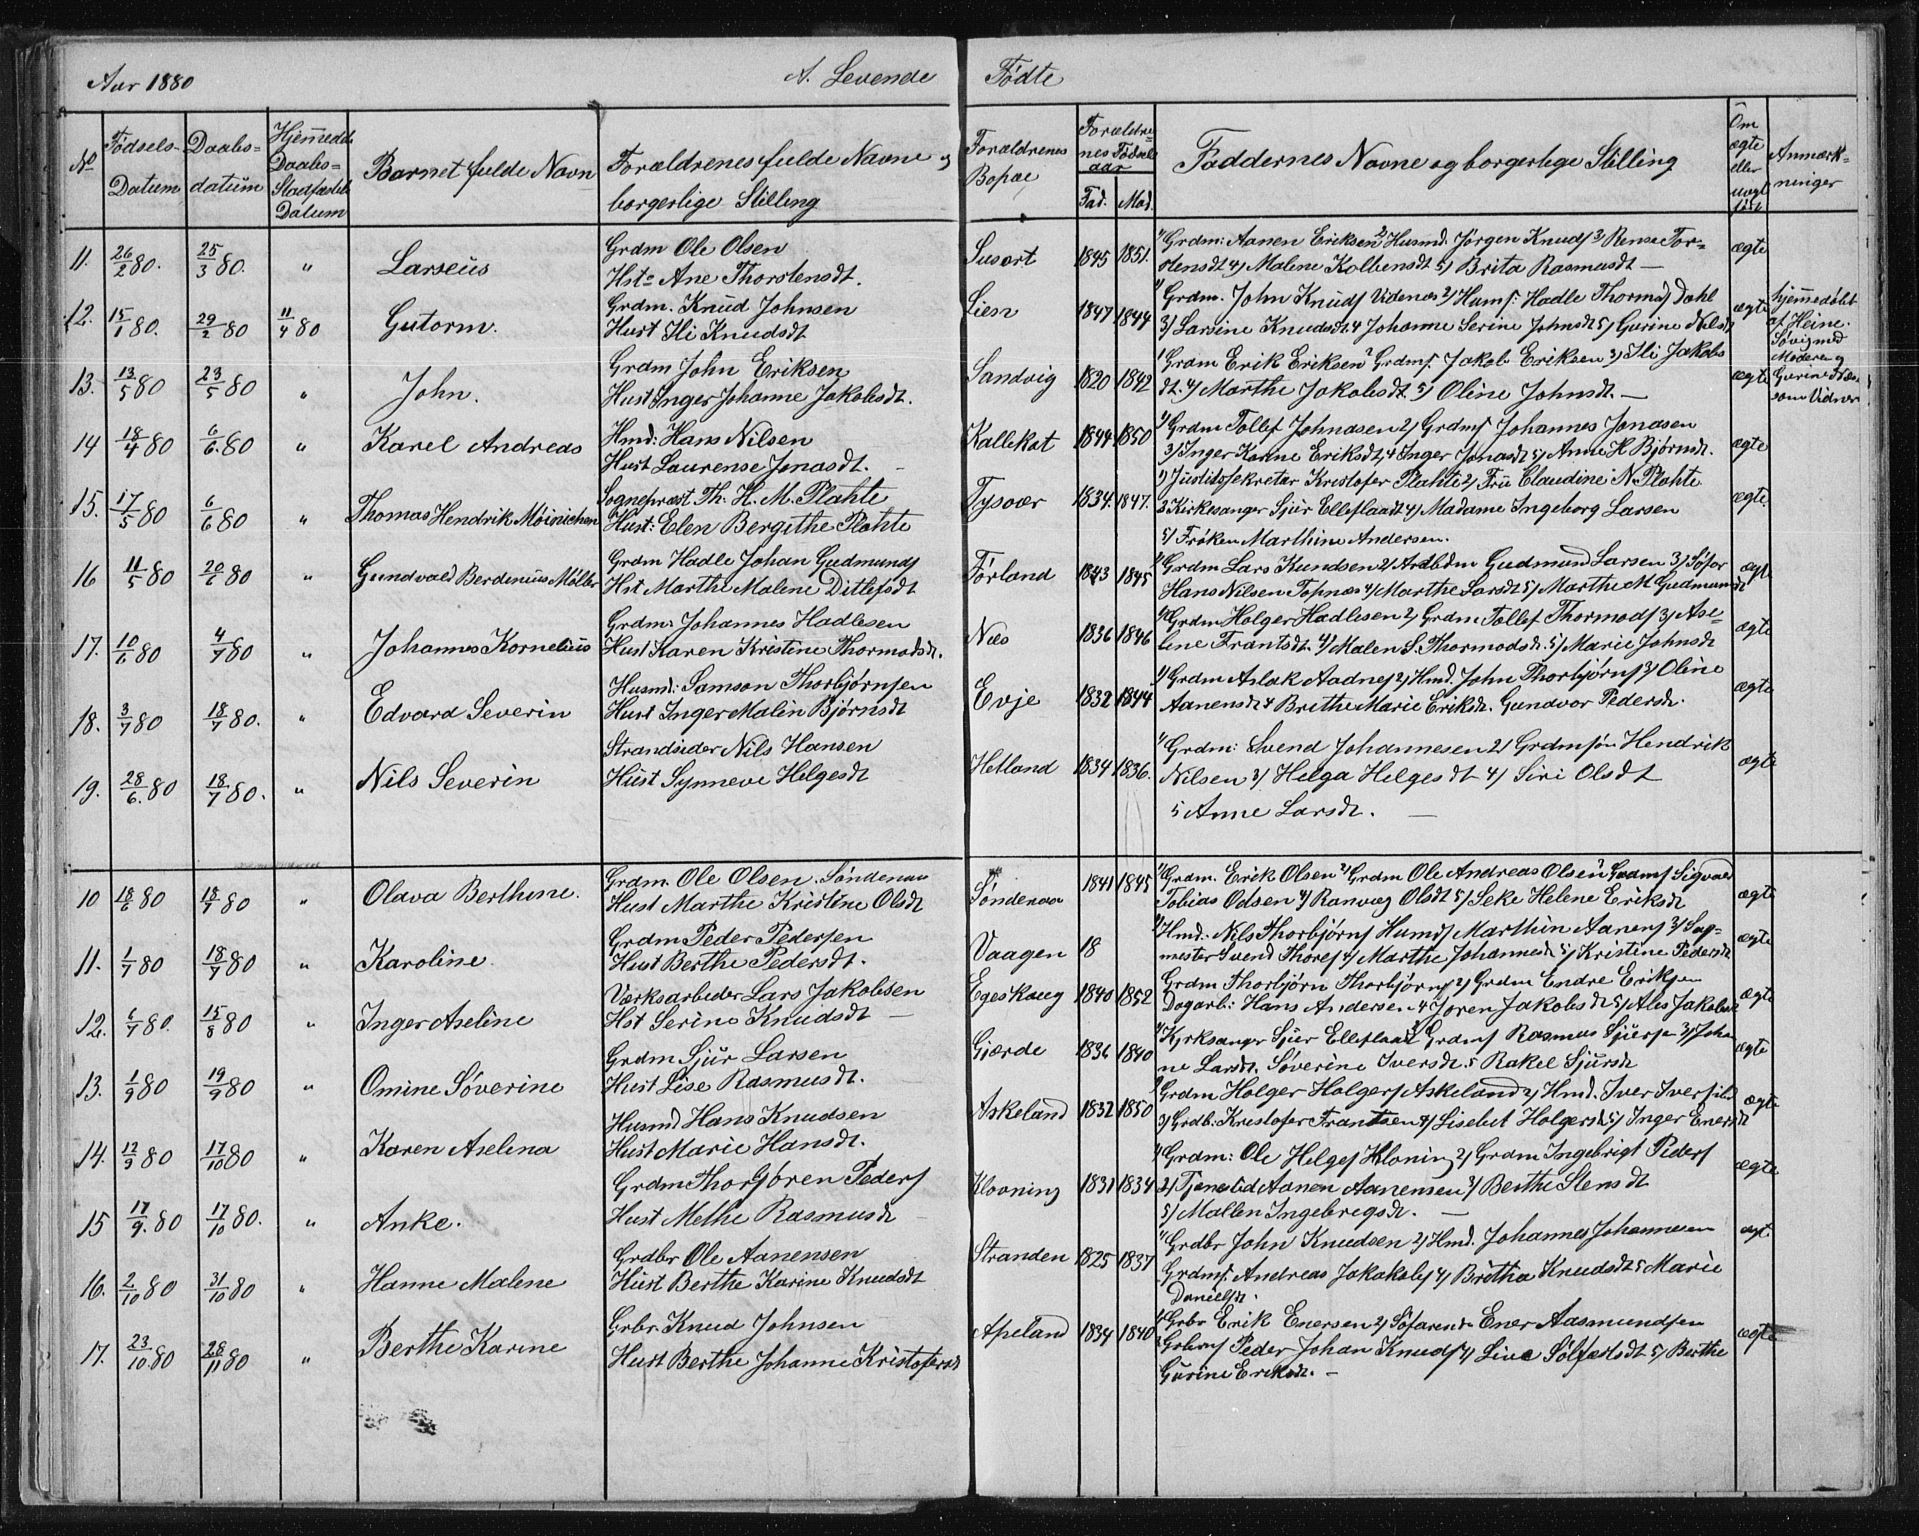 Aar 1880 A. Levende Fødte
No Fødsels-Datum Daabs-datum Hjemmedbs Daabs-Stadfæstels Datum Barnet fulde Navn Forældrenes fulde Navne og borgerlige Stilling Forældrenes Bopæl Forældrenes Fødselsaar Fad. Mod. Faddernes Navne og borgerlige Stilling Om ægte eller uægte Anmærkninger
11. 26/2 80. 25/3 80. " Larseus Grdm Ole Olsen Susort 1845 1851 1) Grdm: Aanen Eriksen 2) Husmd. Jørgen Knuds 3) Rense Tor- ægte
Hst: Ane Thorstensdt. stensdt 4) Malene Kolbensdt 5) Brita Rasmusdt —
12. 15/1 80. 29/2 80 11/4 80 Gutorm. Grdm. Knud Johnsen Lien 1847 1844 1) Grdm. John Knuds Videnæs 2) Hums: Hadle Thorms Dahl ægte hjemmedøbt
Hust Ili Knudsdt 3) Larsine Knudsdt. 4 Johanne Serine Johnsdt 5) Gurine Nilsdt af Heine
Søvig med
13. 13/5 80 23/5 80 " John. Grdm John Eriksen Sandvig 1820 1842 1 Grdm Erik Eriksen 2 Grdms. Jakob Eriksen 3) Ili Jakobs ægte Moderen og
Hust Inger Johanne Jakobsdt. dt. 4) Marthe Jakobsdt. 5) Oline Johnsdt. — Gurine
som Vidner
14 18/4 80 6/6 80 " Karel Andreas Hmd: Hans Nilsen Kallekot 1844 1850 1) Grdm Tollef Johnasen 2) Grdms Johannes Jonasen ægte
Hust Laurense Jonasdt. — 3) Inger Karine Eriksdt, 4 Inger Jonasdt 5) Anne H Bjørnsdt.
15. 17/5 80 6/6 80 " Thomas Hendrik Møinichen Sognepræst Th. H. M. Plahte Tysvær 1834. 1847. 1) Justitssekretær Kristofer Plahte 2) Fru Claudine N. Plahte ægte.
Hust: Elen Bergithe Plahte 3 Kirkesanger Sjur Elleflaadt 4) Madame Ingeborg Larsen
5) Frøken Marthine Andersen.
16 11/5 80 20/6 80 " Gundvald Berdenius Møller Grdm Hadle Johan Gudmunds Førland 1843 1845 1) Grdm Lars Knudsen 2) Gudmund Larsen 3) Søfar ægt
Hst Marthe Malene Ditlefsdt Hans Nilsen Topnæs 4) Marthe Larsdt 5) Marthe M Gudmunsdt
17. 10/6 80 4/7 80 " Johannes Kornelius Grdm: Johannes Hadlesen Næs 1836 1846 1) Grdm Holger Hadlesen 2) Grdm Tollef Thormods 3) Ase- ægte
Hust Karen Kristine Thormodsdt. line Frantsdt. 4) Malen S. Thormodsdt. 5) Marie Johnsdt
18. 3/7 80 18/7 80. " Edvard Severin Husmd: Samson Thorbjørnsen Evje 1832 1844 1) Grdm Aslak Aadnes 2) Hmd. John Thorbjørns 3) Oline ægte
Hust Inger Malin Bjørnsdt Aanensdt 4 Brithe Marie Eriksdt. Gundvor Pedersdt.
19. 28/6. 80 18/7 80. " Nils Severin Strandsider Nils Hansen Hetland 1834 1836. 1) Grdm: Svend Johannesen 2) Grdmsøn Hendrik ægte
Hust Synneve Helgesdt Nilsen 3) Helga Helgesdt 4) Siri Olsdt
5 Anne Larsdt. —
10 18/6 80 18/7 80 " Olava Berthine. Grdm. Ole Olsen. Søndenaa Søndenaa 1841 1845 1) Grdm. Erik Olsen 2) Grdm Ole Andreas Olsen 3 Grdms Sigvald ægte
Hust Marthe Kristine Olsdt Tobias Odsen 4) Ranvæg Olsdt 5) Seke Helene Eriksdt
11. 1/7 80 18/7 80 " Karoline. Grdm Peder Pedersen Vaagen 18 1) Hmd. Nils Thorbjørns Humds Marthin Aanens 3) Sag- ægte
Hust Berthe Pedersdt. mester Svend Thores 4) Marthe Johannesdt 5) Kristine Pedersdt
12. 6/7 80. 15/8 80 " Inger Aseline Værksarbeder Lars Jakobsen Egeskaug 1840 1852 Grdm Thorbjørn Thorbjørns 2) Grdm Endre Eriksen ægte
Hst Serine Knudsdt — Dagarb: Hans Andersen 4 Jøren Jakobsdt 5) Ales Jakobsdt
13. 1/9 80 19/9 80 " Omine Søverine Grdm Sjur Larsen Gjærde 1836 1840 1) Kirksanger Sjur Elleflaat 2 Grdms Rasmus Sjursen 3) Joha ægte
Hust Lise Rasmusdt. ne Larsdt. Søverine Iversdt. 5 Rakel Sjursdt
14. 12/9 80 17/10 80 " Karen Aselina Husmd Hans Knudsen Askeland 1832 1850 1) Grdm Holger Holgers Askeland 2) Hmd. Iver Ivers ægte
Hust Marie Hansdt. 3) Grdb. Kristofer Frantsen 4) Lisebet Holgersdt 5) Inger Enersdt
15 17/9. 80 17/10 80. " Anke. Grdm Thorsjøren Peders Klovning 1831 1834 1) Grdm: Ole Helges Kloning 2) Grdm Ingebrigt Peders ægte
Hust Methe Rasmusdt 2) Tjenestd Aanen Aanensen 3) Berthe Stensdt
5) Mallen Ingebregsdt. —
16. 2/10 80 31/10 80 " Hanne Malene Grdbr Ole Aanensen Stranden 1825 1837 1) Grdbr John Knudsen 2) Hmd. Johannes Johannesen ægt.
Hust Berthe Karine Knudsdt Grdms. Andreas Jakobs 4) Britha Knudsdt 5 Marie
Danielsdt.
17. 23/10. 80 28/11 80 " Berthe Karine Grbr. Knud Johnsen Apeland 1834 1840 1) Grbr Erik Enersen 2) Søfarend Ener Aasmundsen ægte
Hust Berthe Johanne Kristofersdt Grbrs Peder Johan Knuds 4) Live Solfæstsdt 5) Berthe
Gurine Eriksdt. —